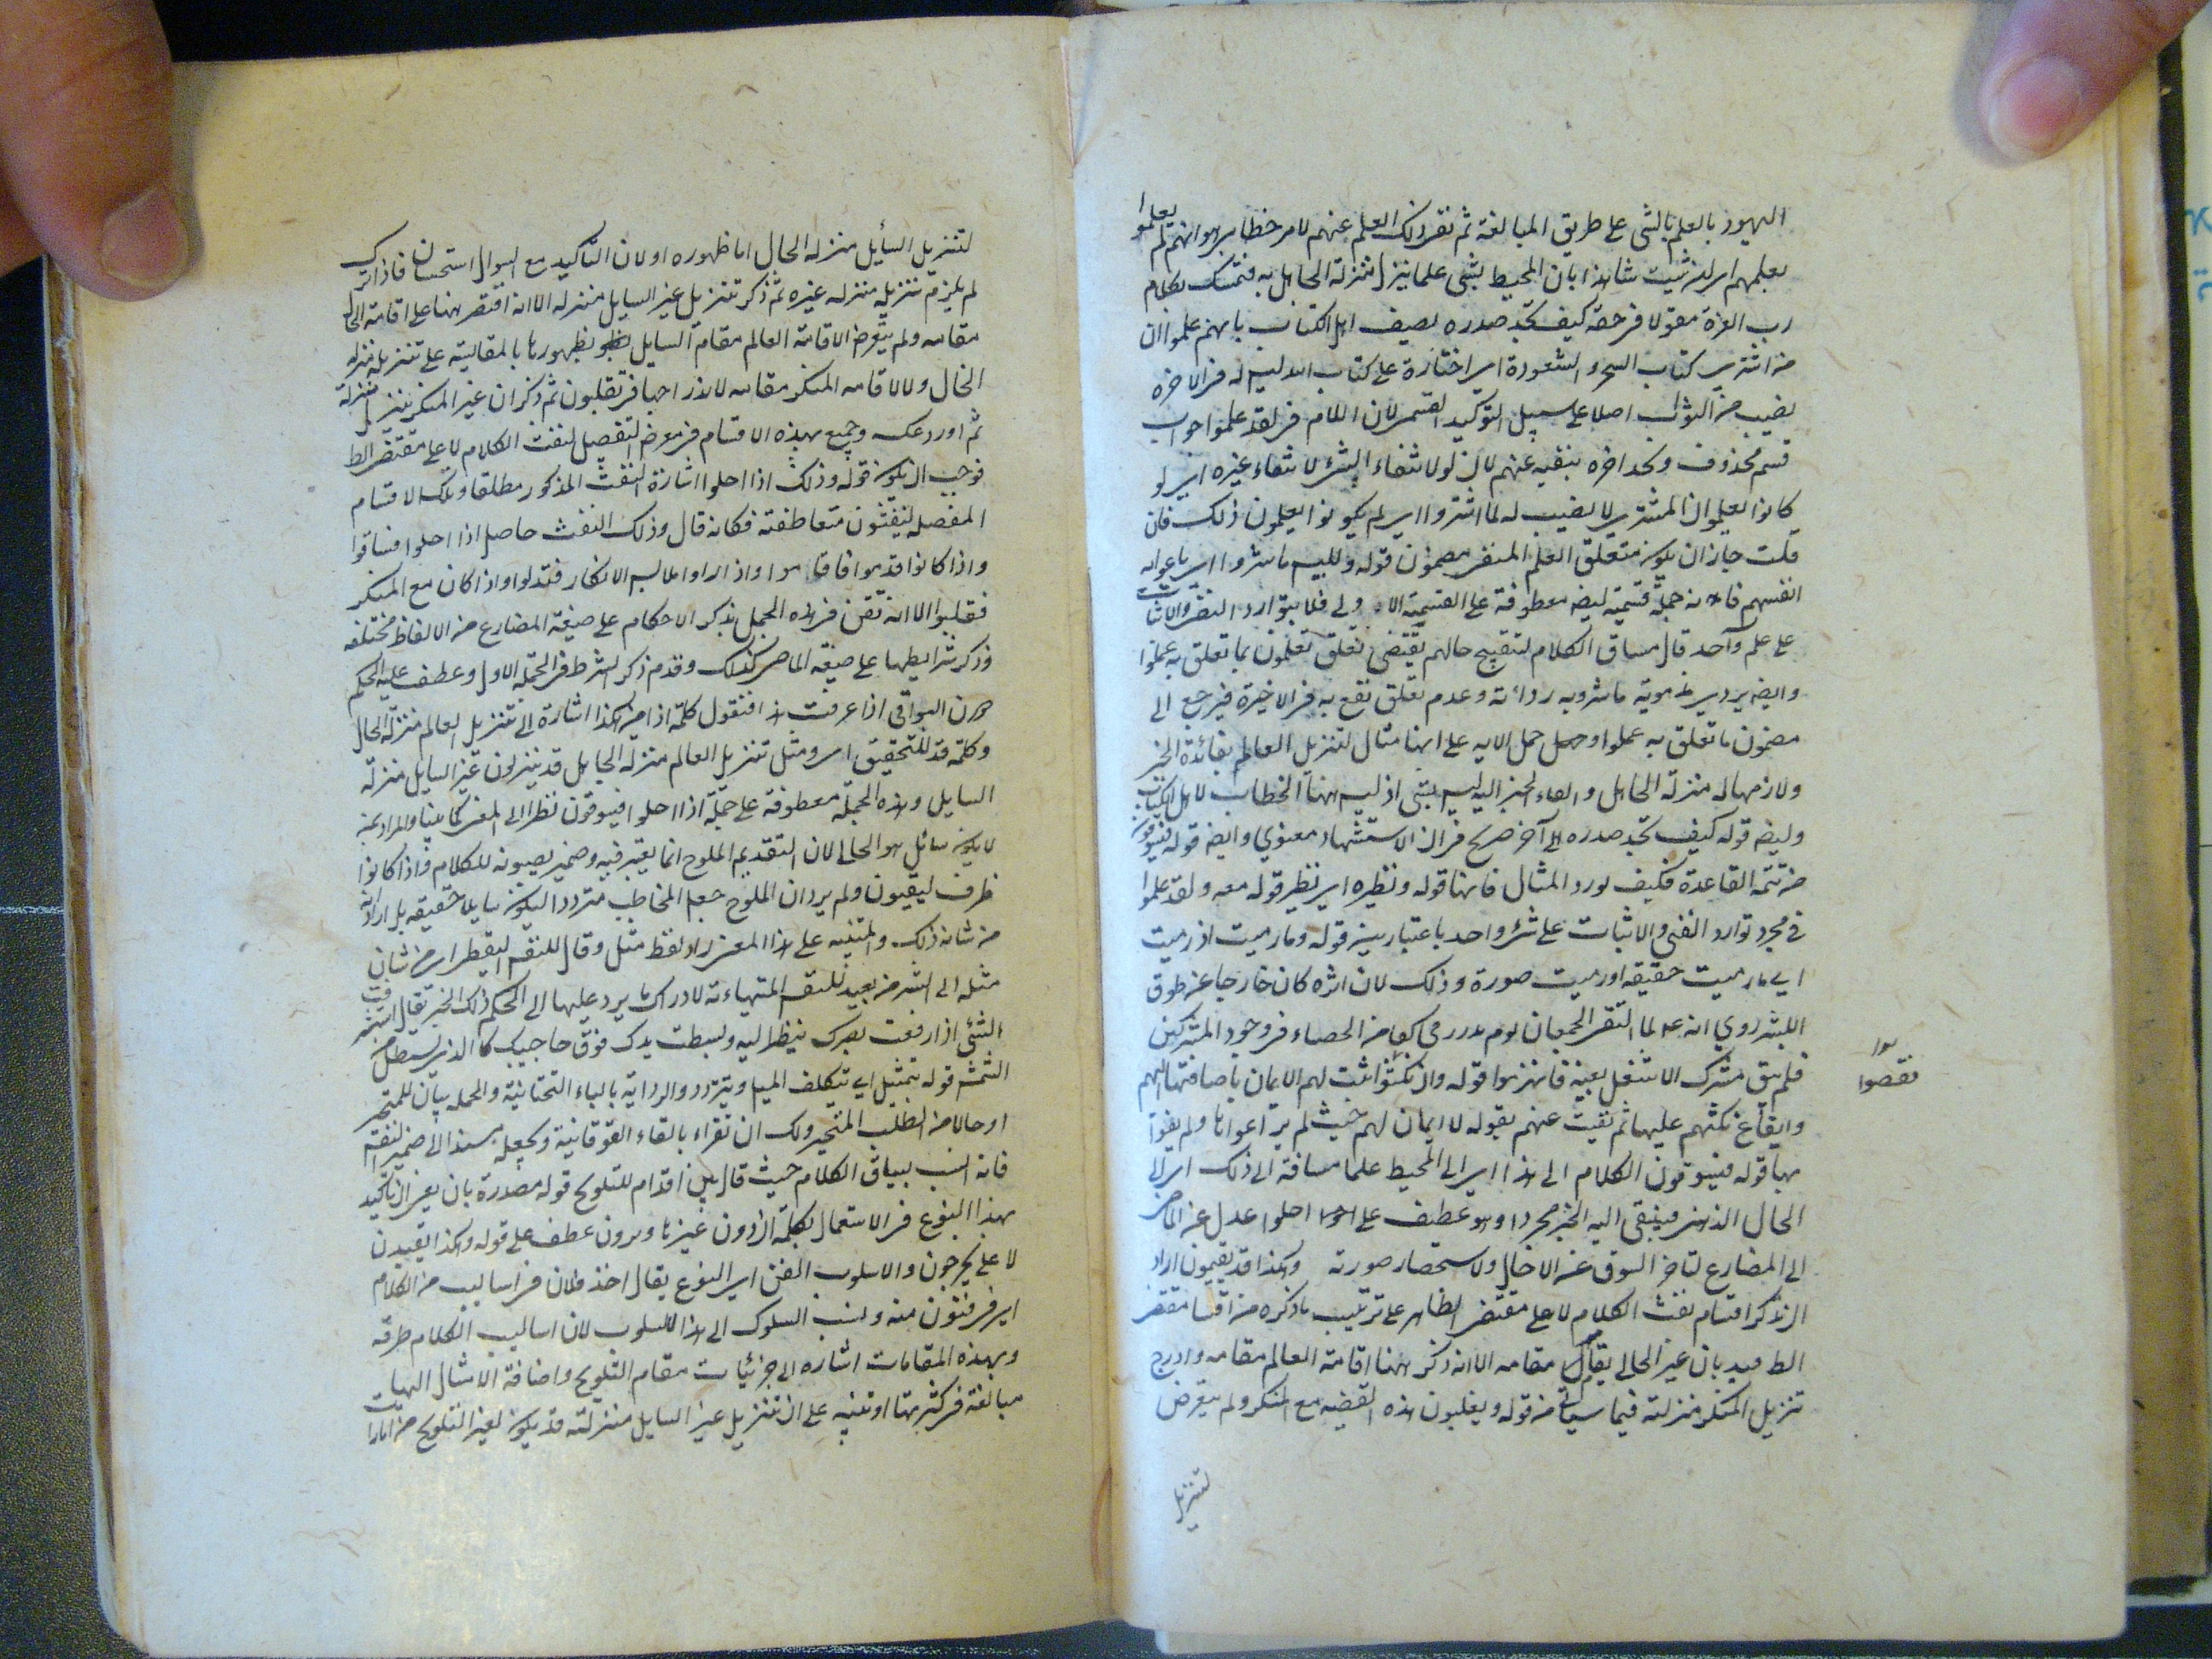 اليهود بالعلم بالشى على طريق المبالغة ثم نفى ذلك العلم عنهم لامر خطابى هو انهم لم يعلموا
بعلمهم اى ان شيت شاهدا بان المحيط بشى علما ينزل منزلة الجاهل به فتمسك بكلام
رب العزة مقولا فى حقه كيف تجد صدره يصف اهل الكتاب بانهم علموا ان
من اشترى كتاب السحر و الشعوذة اى اختاره على كتاب الله ليس له فى الاخرة
نصيب من الثواب اصلا على سبيل التوكيد القسمى لان اللام فى لقد علموا جواب
قسم محذوف وتجد اخره ينفيه عنهم لان لو لانتفاء الشئ لانتفاء غيره اى لو
كانوا يعلموا ان المشترى لا نصيب له لما اشتروا اى لم يكونوا يعلمون ذلك فان
قلت جاز ان يكون متعلق العلم المنفى مضمون قوله ولبيس ما شروا اى باعوا به
انفسهم فانه جملة قسمية ايضا معطوفة على القسمية الاولى فلا يتوارد النفى والاثبات
على علم واحد قال مساق الكلام لتقبيح حالهم يقتضى تعلق تعلمون بما تعلق به علموا
مضمون ما تعلق به علموا وحمل الاية على انها مثال لتنزيل العالم بفائدة الخبر
ولازمها له منزلة الجاهل والقاء الخبر اليه ليس بشى اذ ليس ههنا الخطاب لاهل الكتاب
وايضا قوله كيف تجد صدره الى آخره صريح فى ان الاستشهاد معنوي وايضا قوله فيسوقون
من تتمة القاعدة فكيف يورد المثال فى اثنائها قوله ونظيره اى نظير قوله معه ولقد علموا
فى مجرد توارد النفى والاثبات على شئ واحد باعتبارين قوله وما رميت اذ رميت
اي ما رميت حقيقة اذ رميت صورة وذلك لان اثره كان خارجا عن طوق
البشر روي انه عم لما التقى الجمعان يوم بدر رمى كفا من الحصباء فى وجوه المشركين
فلم يبق مشرك الا شغل بعينه فانهزموا قوله وان نكثوا اثبت لهم الايمان باضافتها اليهم
وايقاع نكثهم عليها ثم نفيت عنهم بقوله لا ايمان لهم حيث لم يراعوا ولم يفوا
بها قوله فيسوقون الكلام الى هذا اى الى المحيط علما مساقه الى ذلك اى الى
الخالى الذهن فيلقى اليه الخبر مجردا وهو عطف على احلوا عدل عن الماضى
الى المضارع لتاخر السوق عن الاحلال ولاستحضار صورته وهكذا قد يقيمون اراد
ان يذكر اقسام نفث الكلام لا على مقتضى الظاهر على ترتيب ما ذكره من اقسام مقتضى
الظ فبدا بان غير الخالى يقام مقامه الا انه ذكر ههنا اقامة العالم مقامه وادرج
تنزيل المنكر منزلته فيما سيأتى من قوله ويقلبون هذه القضية مع المنكر ولم يتعرض
نقضوا
لتنزيل
لتنزيل السأيل منزلة الخالى اما ظهوره او لان التأكيد مع السوال استحسان فاذا ترك
لم يلزم تنزيله منزلة غيره ثم ذكر تنزيل غير السايل منزلته الا انه اقتصر ههنا على اقامة الخالى
مقامه ولم يتعرض لاقامة العالم مقام السايل لظهورها بالمقايسة على تنزيله منزلة
الخالى ولا لاقامة المنكر مقامه لاندراجها فى يقلبون ثم ذكر ان غير المنكر ينزل منزلته
ثم اورد عكسه وجميع هذه الاقسام فى معرض التفصيل لنفث الكلام لا على مقتضى الظ
فوجب ان يكون قوله وذلك اذا احلوا اشارة النفث المذكور مطلقا وتلك الاقسام
المفصلة لينفثون متعاطفة فكانه قال وذلك النفث حاصل اذا احلوا فساقوا
فقلبوا الا انه تفنن فى هذه الجمل بذكر الاحكام على صيغة المضارع من الالفاظ مختلفة
وذكر شرايطها على صيغة الماضى كذلك وقدم ذكر الشرط فى الجملة الاولى وعطف عليه الحكم
دون البواقى اذا عرفت هذا فنقول كلمة اذا من هكذا اشارة الى تنزيل العالم منزلة الخالى
وكلمة قد للتحقيق اى ومثل تنزيل العالم منزلة الجاهل قد ينزلون غير السايل منزلة
السايل وهذه الجملة معطوفة على جملة اذا احلوا فيسوقون نظرا الى المعنى كما بينا والمراد بمن
لا يكون سائل هو الخالى لان التقديم الملوح انما يعتبر فيه وضمير يصبونه للكلام واذا كانوا
ظرف ليقيمون ولم يرد ان الملوح جعل المخاطب مترددا ليكون سايلا حقيقة بل اراد انه
من شانه ذلك والتنبيه على هذا المعنى زاد لفظ مثل وقال للنفس اليقظى اى من شان
مثله الى الشرف بعيد للنفس المتهياءة لادراك ما يرد عليها الى الحكم ذلك الخبر تقال استشرفت
الشئ اذا رفعت بصرك ينظر اليه وبسطت يدك فوق حاجبك كالذى يستظل من
الشمس قوله يتميل اي يتكلف الميل ويتردد والرواية بالياء التحتانية والجملة بيان للمتحير
او حالا من الطلب المتحير ولك ان تقراء بالتاء الفوقانية وتجعله مسندا الى ضمير النفس
فانه انسب بسياق الكلام حيث قال بين اقدام للتلويح قوله مصدرة بان يعنى ان تأكيد
هذا النوع فى الاستعمال بكلمة ان دون غيرها ويرون عطف على قوله وهكذا يقيمون
لا على يخرجون والاسلوب الفن اى النوع يقال اخذ فلان فى اساليب من الكلام
اى فى فنون منه ونسب السلوك الى هذا الاسلوب لان اساليب الكلام طرقه
وبهذه المقامات اشارة الى جزئيات مقام التلويح واضافة الامثال اليها
مبالغة فى كثرتها او تنبيه على ان تنزيل غير السايل منزلته قد يكون لغير التلويح من امارات